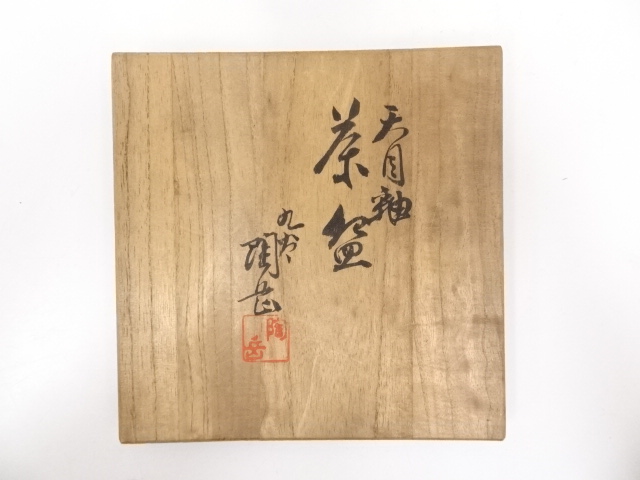 天目釉
茶盌
九谷
陶岳
陶岳